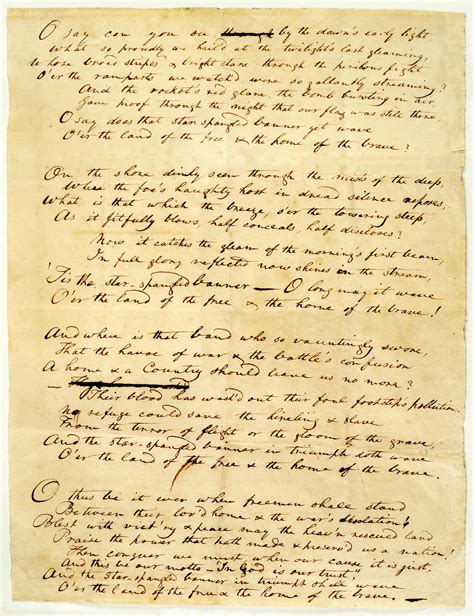 O say can you see ~~through~~ by the dawn's early light
What so proudly we hail'd at the twilight's last gleaming,
Whose broad stripes & bright stars through the perilous fight
O'er the ramparts we watch'd, were so gallantly streaming?
And the rocket's red glare, the bomb bursting in air,
Gave proof through the night that our flag was still there,
O say does that star-spangled banner yet wave
O'er the land of the free & the home of the brave?
On the shore dimly seen through the mists of the deep,
Where the foe's haughty host in dread silence reposes,
What is that which the breeze, o'er the towering steep,
As it fitfully blows, half conceals, half discloses?
Now it catches the gleam of the morning's first beam,
In full glory reflected now shines in the stream,
'Tis the star-spangled banner — O long may it wave
O'er the land of the free & the home of the brave!
And where is that band who so vauntingly swore,
That the havoc of war & the battle's confusion
A home & a Country should leave us no more?
—
Their blood has wash'd out their foul footsteps pollution.
No refuge could save the hireling & slave
From the terror of flight or the gloom of the grave,
And the star-spangled banner in triumph doth wave
O'er the land of the free & the home of the brave.
O thus be it ever when freemen shall stand
Between their lov'd home & the war's desolation!
Blest with vict'ry & peace may the heav'n rescued land
Praise the power that hath made & preserv'd us a nation!
Then conquer we must, when our cause it is just,
And this be our motto — In God is our trust,
And the star-spangled banner in triumph shall wave
O'er the land of the free & the home of the brave. —